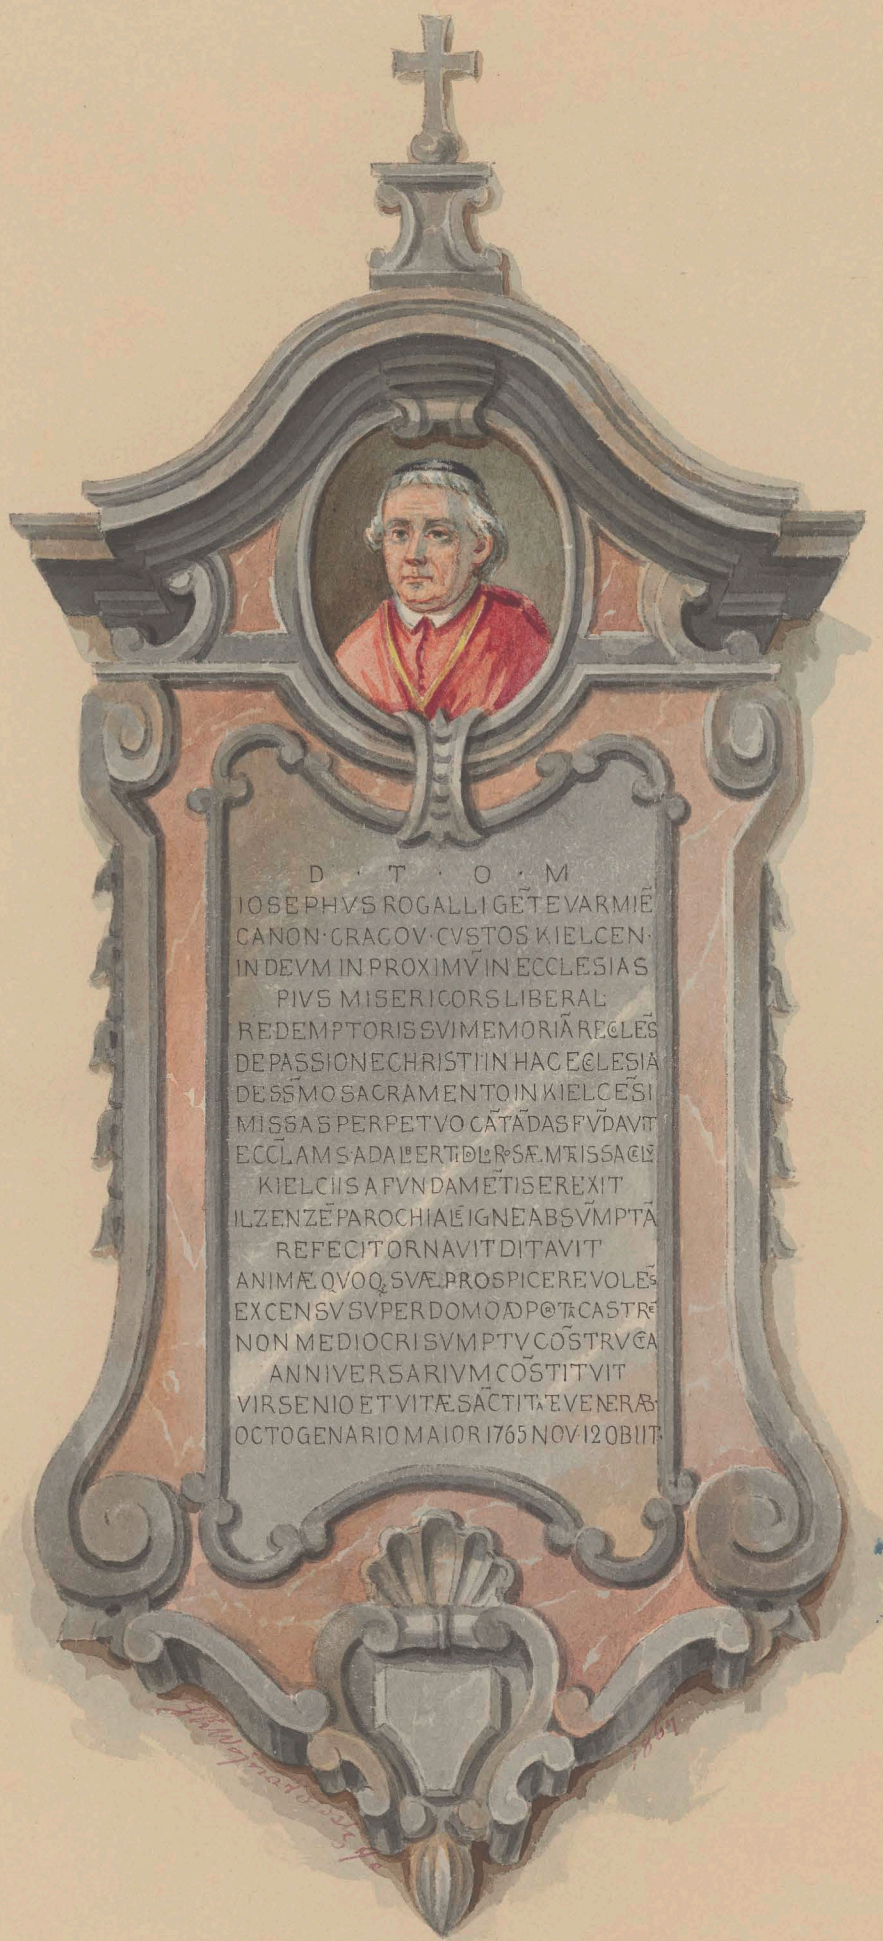 D · T · O · M
IOSEPHVS ROGALLI GẼTE VARMIẼ
CANON · CRACOV · CVSTOS KIELCEN ·
IN DEVM IN PROXIMṼ IN ECCLESIAS
PIVS MISERICORS LIBERAL
REDEMPTORIS SVI MEMORIÃ RECCLẼS
DE PASSIONE CHRISTI IN HAC ECCLESIA
DE SS̃MO SACRAMENTO IN KIELCẼSI
MISSAS PERPETVO CÃTÃDAS FṼDAVIT
ECCL̃AM S · ADALBERTI
KIELCIIS A FVNDAMẼTIS EREXIT
ILZENZẼ PAROCHIALẼ IGNE ABSṼMPTÃ
REFECIT ORNAVIT DITAVIT
ANIMÆ QVOQ, SVÆ PROSPICERE VOLẼS
EX CENSV SVPER DOMO CASTRẼ
NON MEDIOCRI SVMPTV CÕSTRVCTA
ANNIVERSARIVM CÕSTITVIT
VIR SENIO ET VITÆ SÃCTITATE VENERAB ·
OCTOGENARIO MAIOR 1765 NOV · 12 OBIIT ·